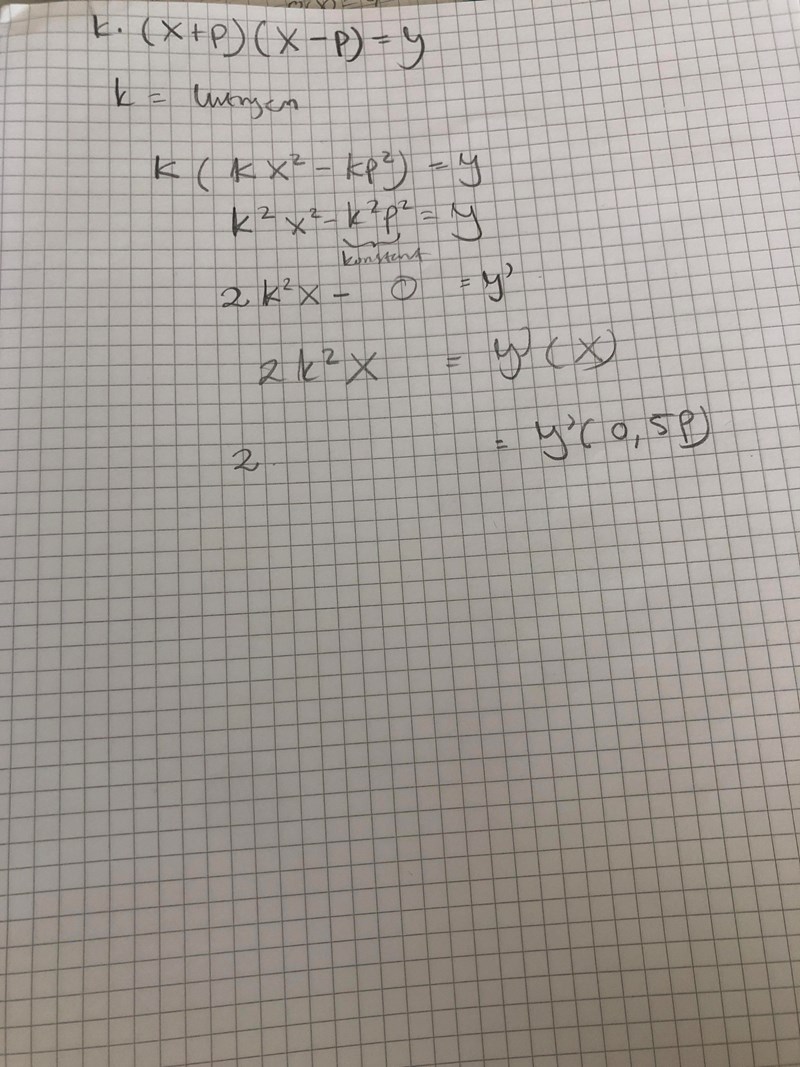 k · (x+p)(x-p) = y
k =
k ( kx² - kp²) = y
k²x² - k²p² = y
konstant
2k²x - 0 = y'
2k²x = y'(x)
2 = y'(0,5p)